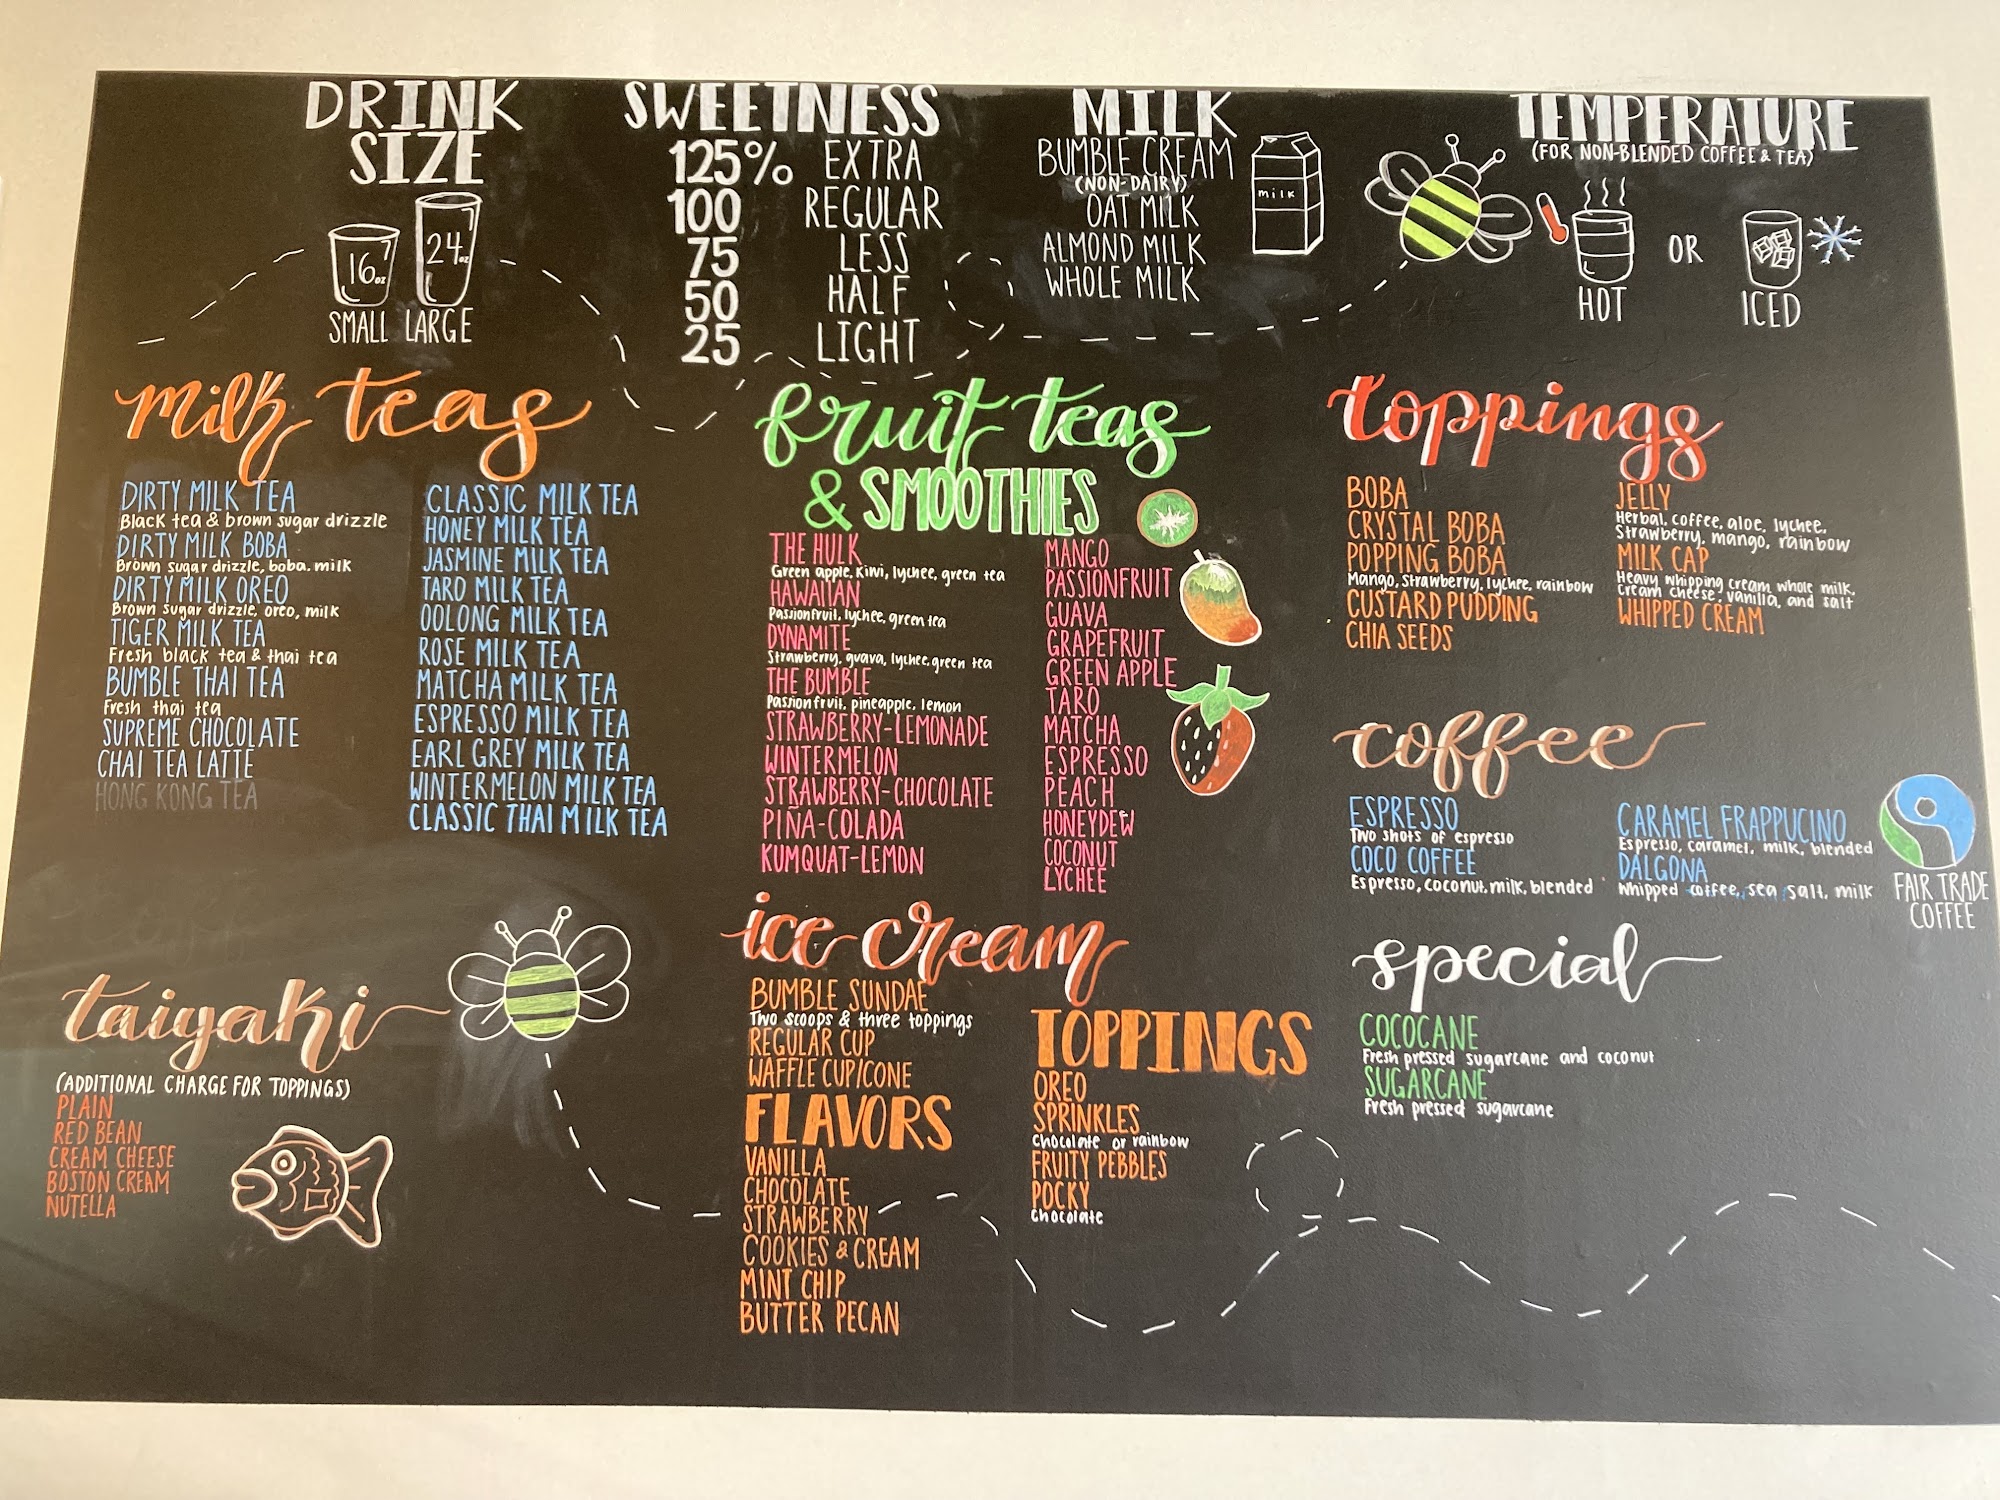 DRINK
SIZE
16oz
24oz
SMALL LARGE
SWEETNESS
125% EXTRA
100 REGULAR
75 LESS
50 HALF
25 LIGHT
MILK
BUMBLE CREAM
(NON-DAIRY)
OAT MILK
ALMOND MILK
WHOLE MILK
milk
TEMPERATURE
(FOR NON-BLENDED COFFEE & TEA)
HOT
OR
ICED
milk teas
DIRTY MILK TEA
Black tea & brown sugar drizzle
DIRTY MILK BOBA
Brown sugar drizzle, boba, milk
DIRTY MILK OREO
Brown sugar drizzle, oreo, milk
TIGER MILK TEA
Fresh black tea & thai tea
BUMBLE THAI TEA
Fresh thai tea
SUPREME CHOCOLATE
CHAI TEA LATTE
HONG KONG TEA
CLASSIC MILK TEA
HONEY MILK TEA
JASMINE MILK TEA
TARO MILK TEA
OOLONG MILK TEA
ROSE MILK TEA
MATCHA MILK TEA
ESPRESSO MILK TEA
EARL GREY MILK TEA
WINTERMELON MILK TEA
CLASSIC THAI MILK TEA
fruit teas
& SMOOTHIES
THE HULK
Green apple, kiwi, lychee, green tea
HAWAIIAN
Passionfruit, lychee, green tea
DYNAMITE
Strawberry, guava, lychee, green tea
THE BUMBLE
Passionfruit, pineapple, lemon
STRAWBERRY-LEMONADE
WINTERMELON
STRAWBERRY-CHOCOLATE
PIÑA-COLADA
KUMQUAT-LEMON
MANGO
PASSIONFRUIT
GUAVA
GRAPEFRUIT
GREEN APPLE
TARO
MATCHA
ESPRESSO
PEACH
HONEYDEW
COCONUT
LYCHEE
toppings
BOBA
CRYSTAL BOBA
POPPING BOBA
Mango, strawberry, lychee, rainbow
CUSTARD PUDDING
CHIA SEEDS
JELLY
Herbal, coffee, aloe, lychee,
Strawberry, mango, rainbow
MILK CAP
Heavy whipping cream, whole milk,
cream cheese, vanilla, and salt
WHIPPED CREAM
coffee
ESPRESSO
Two shots of espresso
COCO COFFEE
Espresso, coconut, milk, blended
CARAMEL FRAPPUCINO
Espresso, caramel, milk, blended
DALGONA
Whipped coffee, sea salt, milk
FAIR TRADE
COFFEE
taiyaki
(ADDITIONAL CHARGE FOR TOPPINGS)
PLAIN
RED BEAN
CREAM CHEESE
BOSTON CREAM
NUTELLA
ice cream
BUMBLE SUNDAE
Two scoops & three toppings
REGULAR CUP
WAFFLE CUP/CONE
FLAVORS
VANILLA
CHOCOLATE
STRAWBERRY
COOKIES & CREAM
MINT CHIP
BUTTER PECAN
TOPPINGS
OREO
SPRINKLES
Chocolate or rainbow
FRUITY PEBBLES
POCKY
Chocolate
special
COCOCANE
Fresh pressed sugarcane and coconut
SUGARCANE
Fresh pressed sugarcane